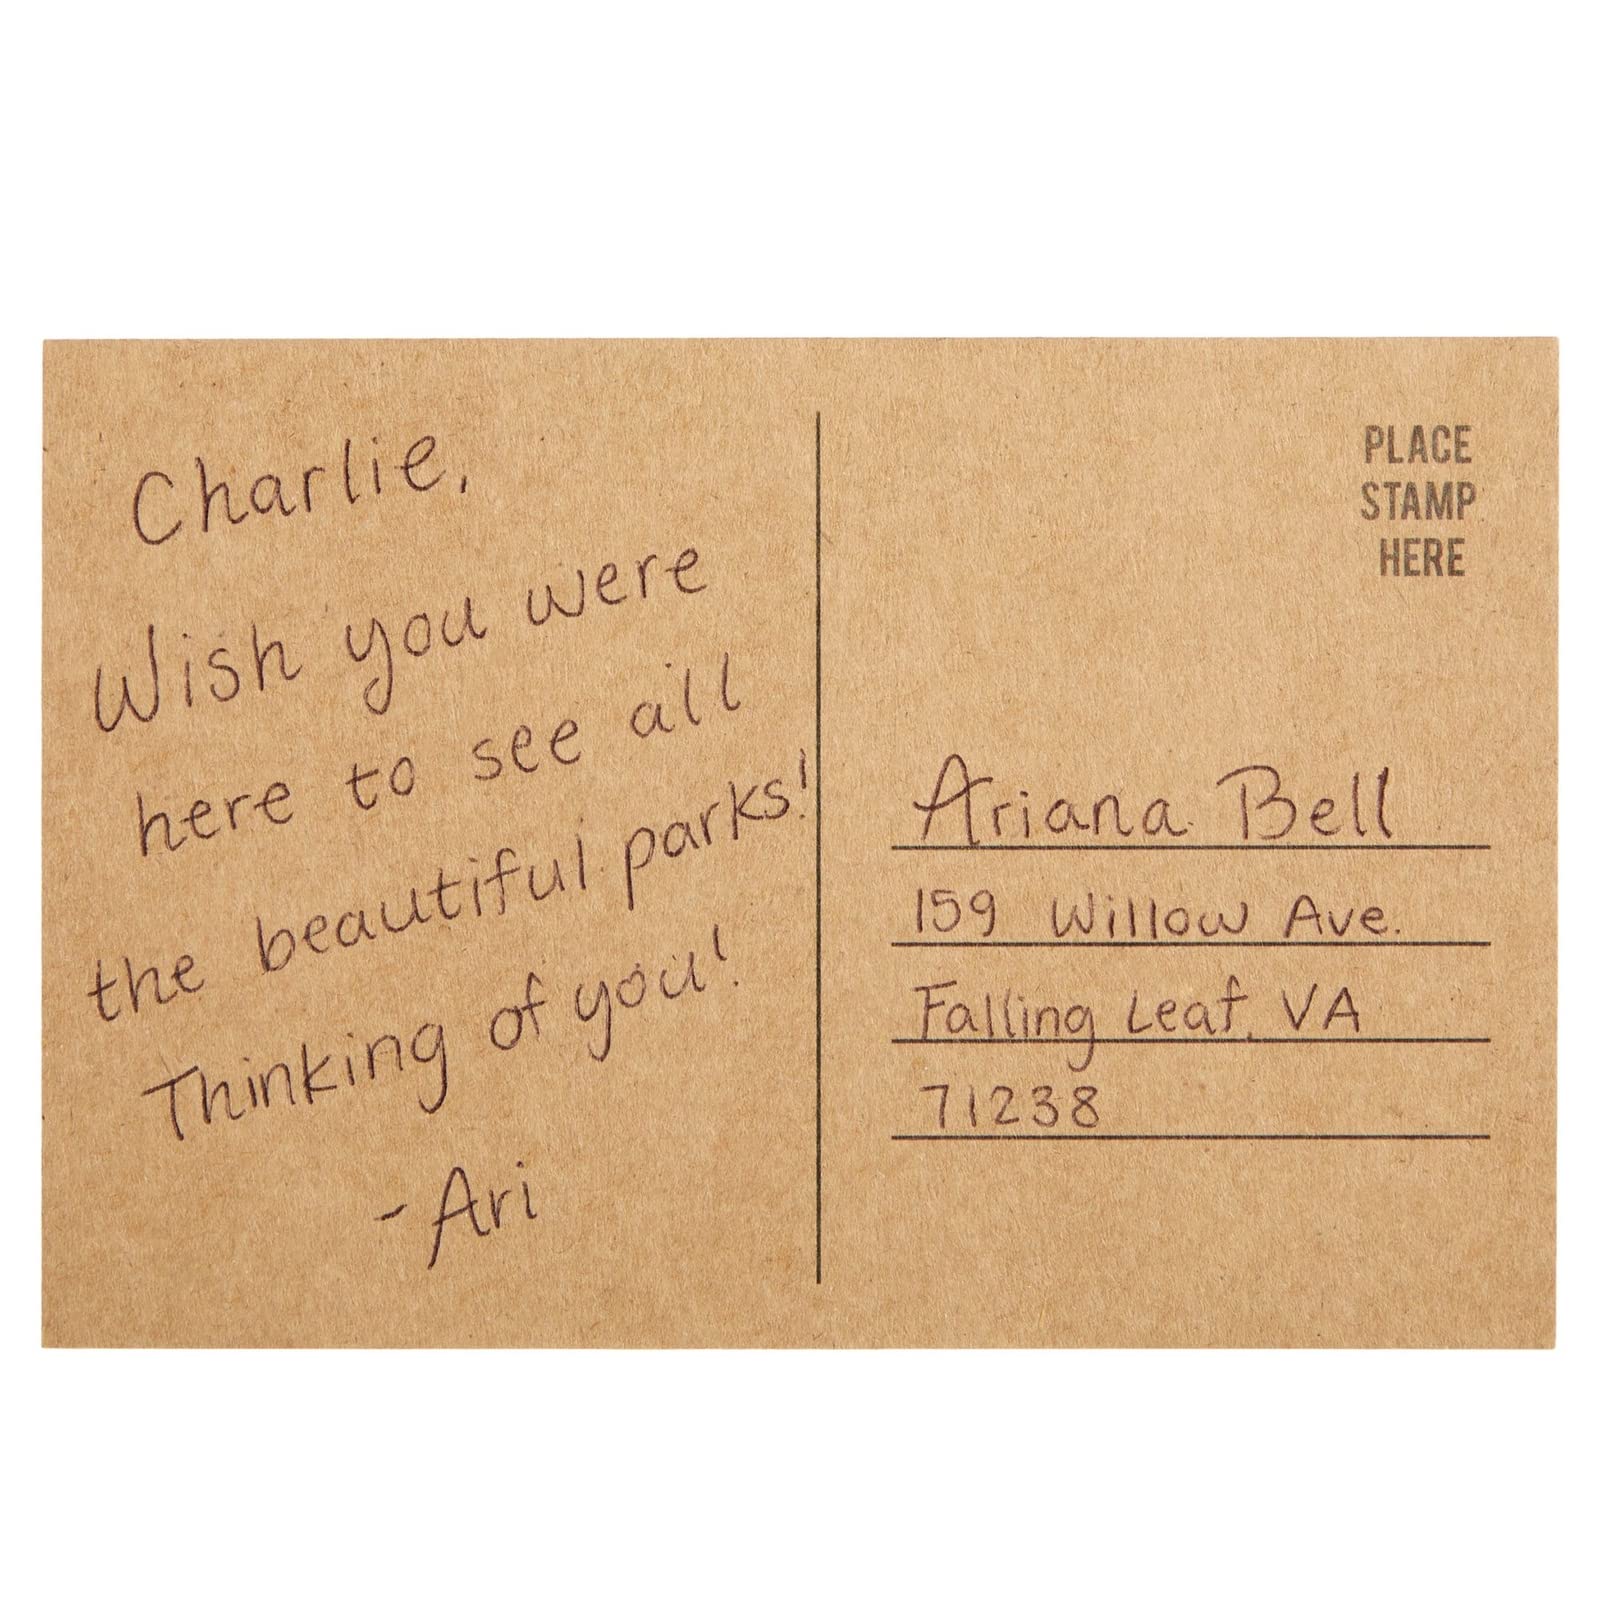 Charlie,
Wish you were
here to see all
the beautiful parks!
Thinking of you!
-Ari
PLACE
STAMP
HERE
Ariana Bell
159 Willow Ave.
Falling Leaf, VA
71238